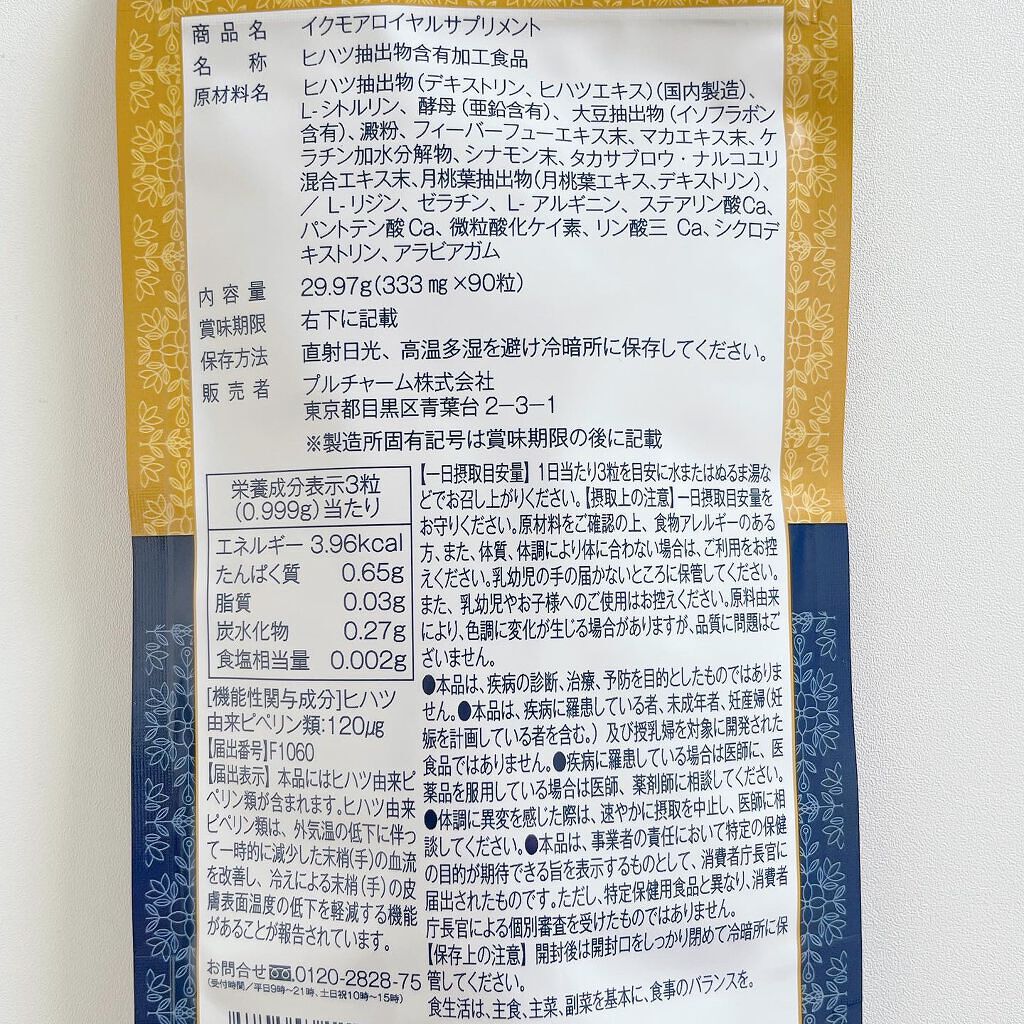 商品名 イクモアロイヤルサプリメント
名称 ヒハツ抽出物含有加工食品
原材料名 ヒハツ抽出物(デキストリン、ヒハツエキス)(国内製造)、
L-シトルリン、酵母(亜鉛含有)、大豆抽出物(イソフラボン
含有)、澱粉、フィーバーフューエキス末、マカエキス末、ケ
ラチン加水分解物、シナモン末、タカサブロウ・ナルコユリ
混合エキス末、月桃葉抽出物(月桃葉エキス、デキストリン)、
/ L-リジン、ゼラチン、L-アルギニン、ステアリン酸Ca、
パントテン酸Ca、微粒酸化ケイ素、リン酸三Ca、シクロデ
キストリン、アラビアガム
内容量 29.97g(333㎎×90粒)
賞味期限 右下に記載
保存方法 直射日光、高温多湿を避け冷暗所に保存してください。
販売者 プルチャーム株式会社
東京都目黒区青葉台2-3-1
※製造所固有記号は賞味期限の後に記載
栄養成分表示3粒
(0.999g)当たり
エネルギー 3.96kcal
たんぱく質 0.65g
脂質 0.03g
炭水化物 0.27g
食塩相当量 0.002g
[機能性関与成分]ヒハツ
由来ピペリン類:120μg
[届出番号]F1060
[届出表示]本品にはヒハツ由来ピ
ペリン類が含まれます。ヒハツ由来
ピペリン類は、外気温の低下に伴っ
て一時的に減少した末梢(手)の血流
を改善し、冷えによる末梢(手)の皮
膚表面温度の低下を軽減する機能
があることが報告されています。
お問合せ 0120-2828-75
(受付時間/平日9時~21時、土日祝10時~15時)
【一日摂取目安量】1日当たり3粒を目安に水またはぬるま湯な
どでお召し上がりください。【摂取上の注意】一日摂取目安量を
お守りください。原材料をご確認の上、食物アレルギーのある
方、また、体質、体調により体に合わない場合は、ご利用をお控
えください。乳幼児の手の届かないところに保管してください。
また、乳幼児やお子様へのご使用はお控えください。原料由来
により、色調に変化が生じる場合がありますが、品質に問題はご
ざいません。
●本品は、疾病の診断、治療、予防を目的としたものではありま
せん。●本品は、疾病に罹患している者、未成年者、妊産婦(妊
娠を計画している者を含む。)及び授乳婦を対象に開発された
食品ではありません。●疾病に罹患している場合は医師に、医
薬品を服用している場合は医師、薬剤師に相談してください。
●体調に異変を感じた際は、速やかに摂取を中止し、医師に相
談してください。●本品は、事業者の責任において特定の保健
の目的が期待できる旨を表示するものとして、消費者庁長官に
届出されたものです。ただし、特定保健用食品と異なり、消費者
庁長官による個別審査を受けたものではありません。
【保存上の注意】開封後は開封口をしっかり閉めて冷暗所に保
管してください。
食生活は、主食、主菜、副菜を基本に、食事のバランスを。